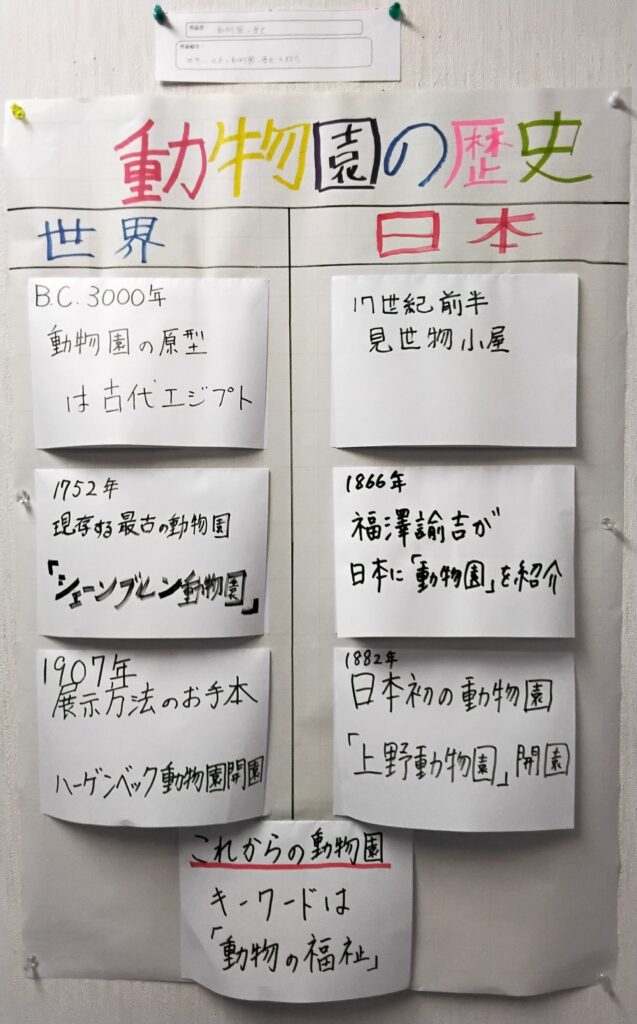 作品名: 動物園の歴史
作品紹介
動物園の歴史
世界
B.C.3000年
動物園の原型
は古代エジプト
1752年
現存する最古の動物園
「シェーンブルン動物園」
1907年
展示方法のお手本
ハーゲンベック動物園開園
日本
17世紀前半
見世物小屋
1866年
福澤諭吉が
日本に「動物園」を紹介
1882年
日本初の動物園
「上野動物園」開園
これからの動物園
キーワードは
「動物の福祉」